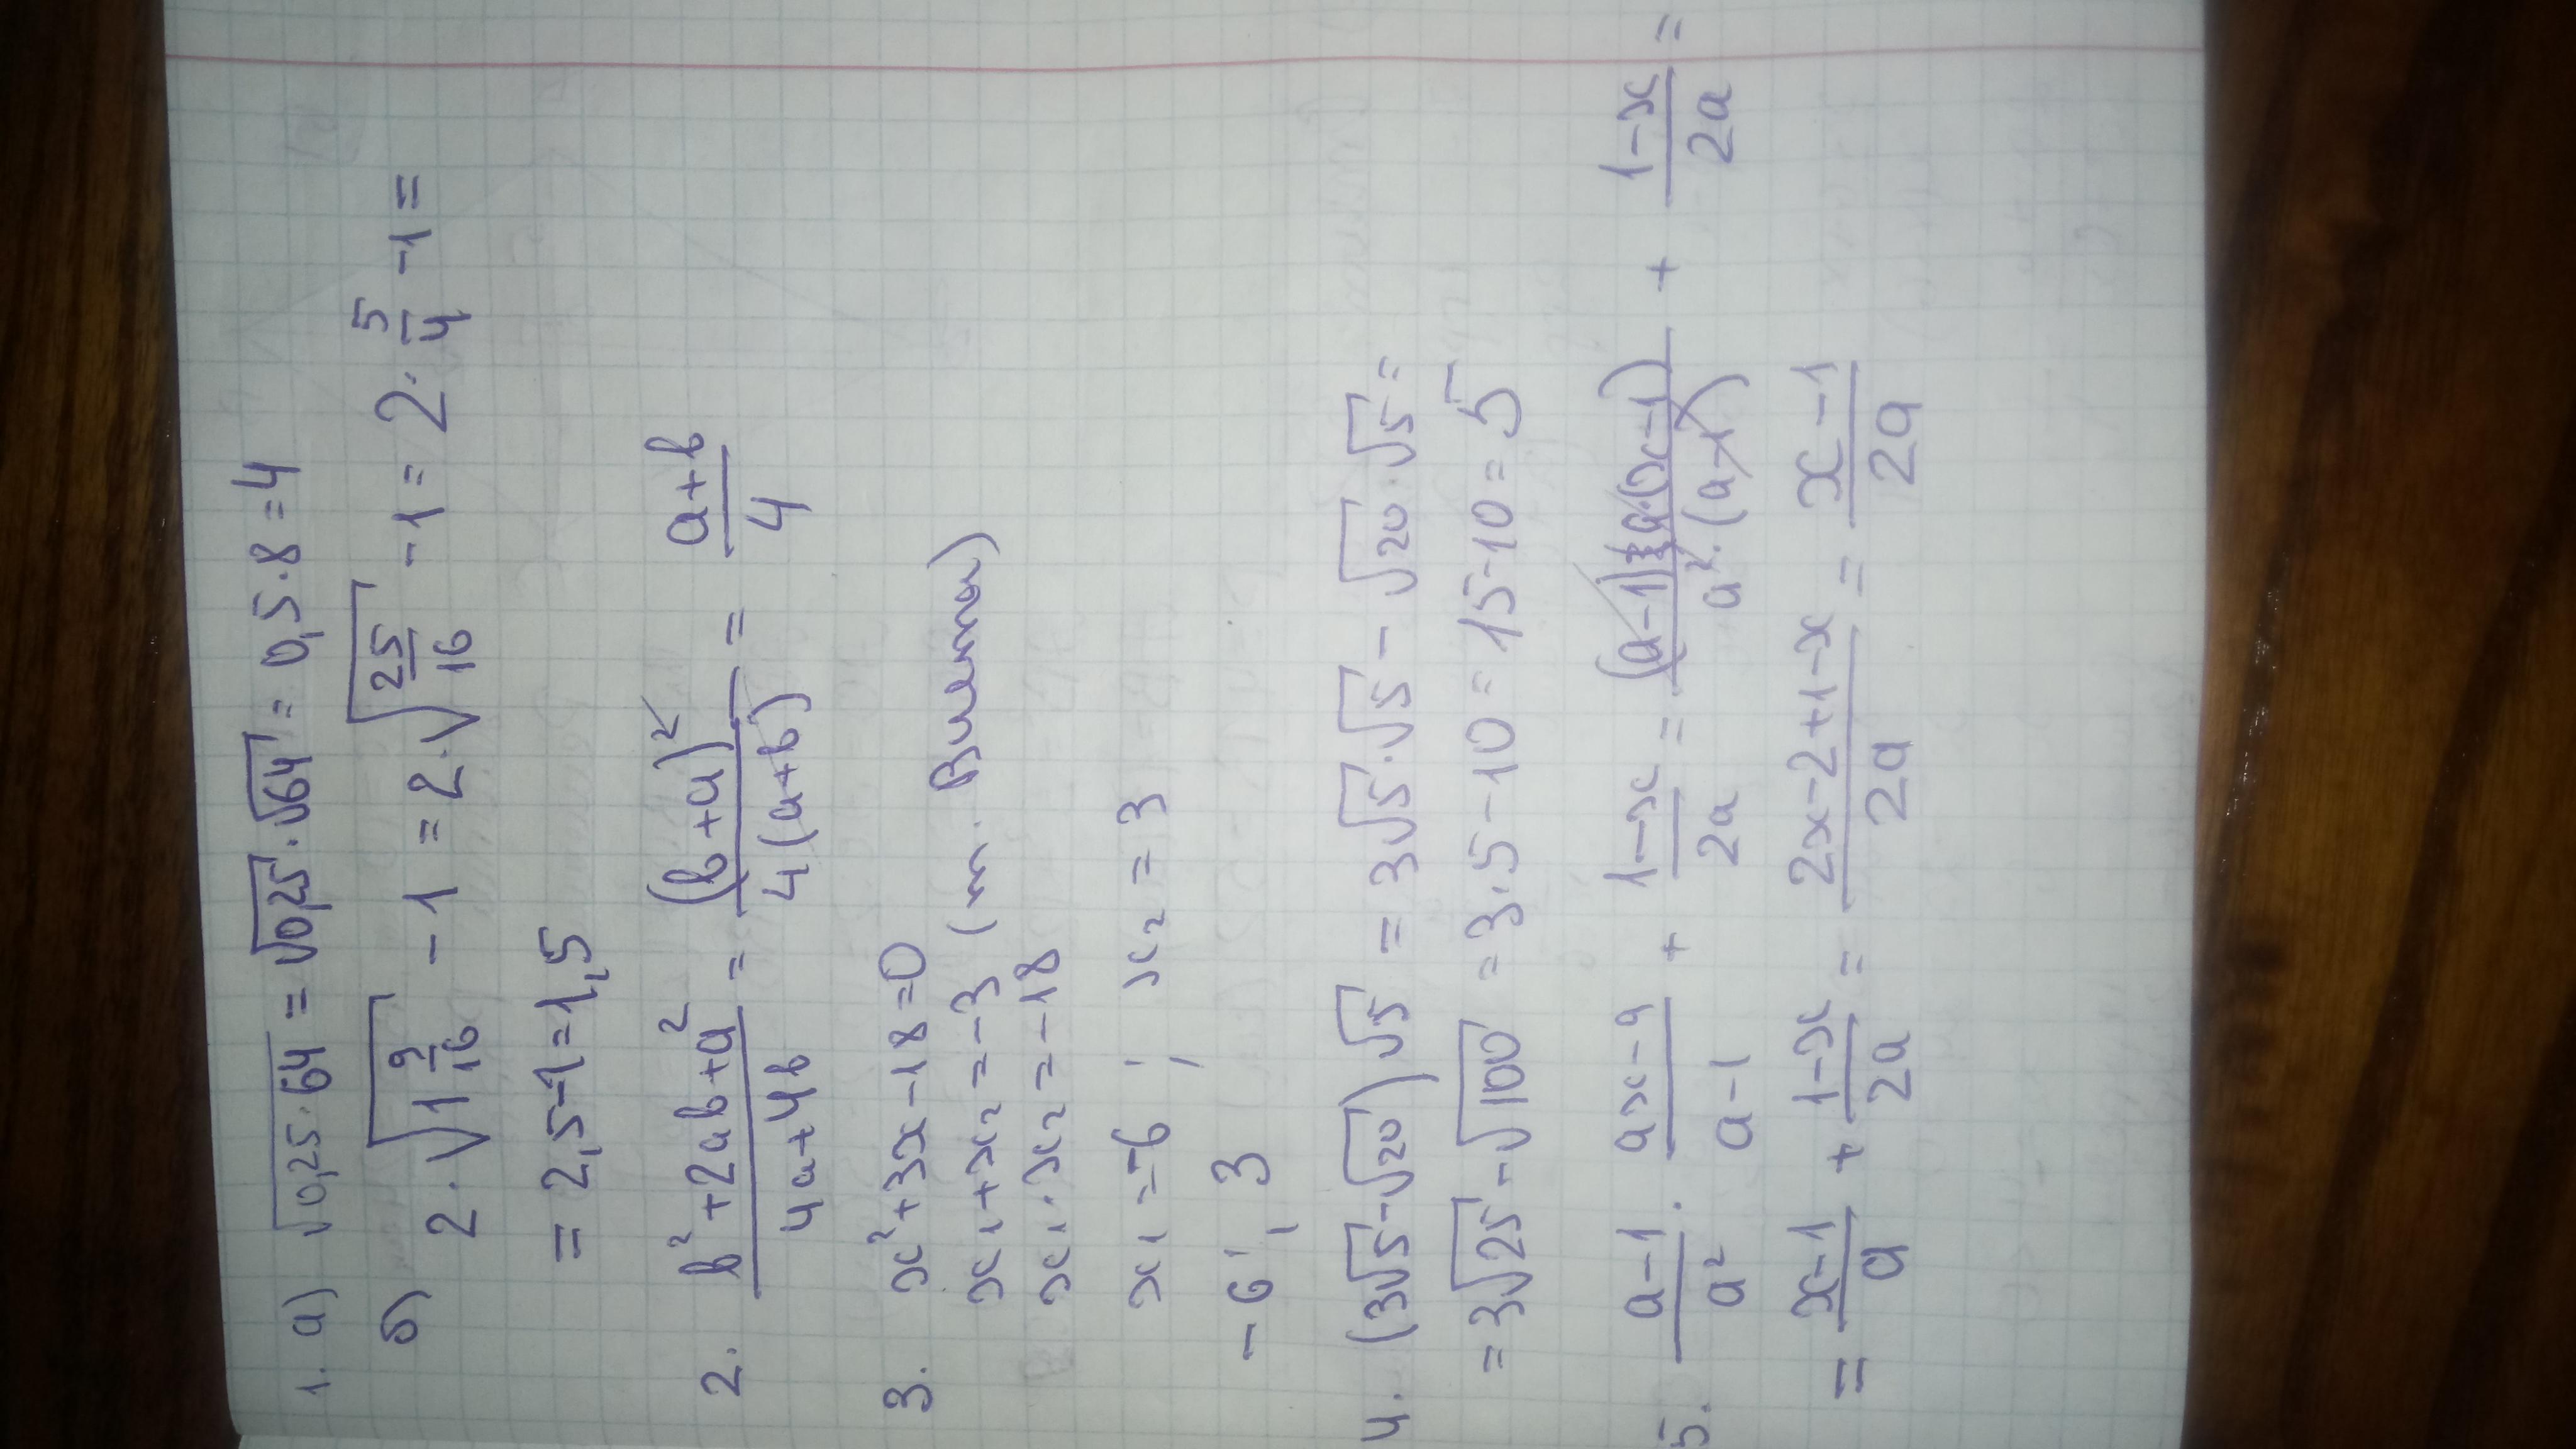 1. а) √0,25·64 = √0,25·√64 = 0,5·8 = 4
б) 2·√1 9/16 - 1 = 2·√25/16 - 1 = 2·5/4 - 1 =
= 2,5-1=1,5
2. (b²+2ab+a²)/(4a+4b) = (b+a)²/4(a+b) = (a+b)/4
3. x²+3x-18=0
x₁+x₂=-3 (т. Виета)
x₁·x₂=-18
x₁=-6 ; x₂=3
-6; 3
4. (3√5-√20)√5 = 3√5·√5 - √20·√5 =
= 3√25-√100 = 3·5-10=15-10=5
5. (a-1)/a² · (ax-a)/(a-1) + (1-x)/2a = (a-1)·a·(x-1)/a²·(a-1) + (1-x)/2a =
= (x-1)/a + (1-x)/2a = (2x-2+1-x)/2a = (x-1)/2a